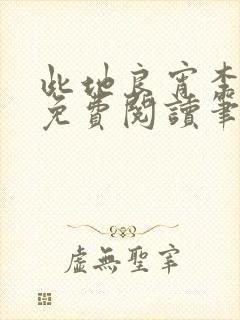 此地良宵李
免費閱讀筆
虛無聖宰